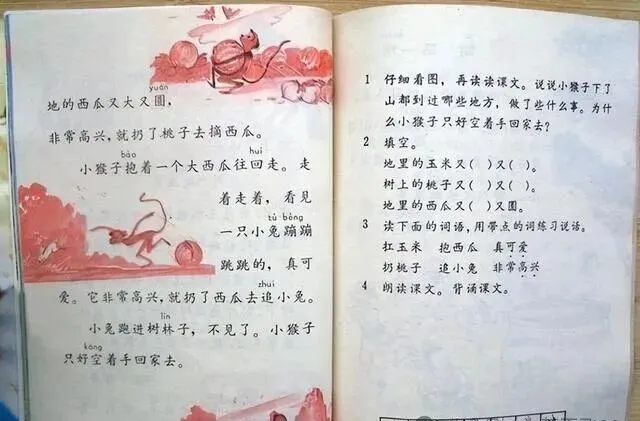 yuán
地的西瓜又大又圆，
非常高兴，就扔了桃子去摘西瓜。
bào huí
小猴子抱着一个大西瓜往回走。走
着走着，看见
tù bèng
一只小兔蹦蹦
跳跳的，真可
zhuī
爱。它非常高兴，就扔了西瓜去追小兔。
lín
小兔跑进树林子，不见了。小猴子
kōng
只好空着手回家去。
1 仔细看图，再读读课文。说说小猴子下了
山都到过哪些地方，做了些什么事。为什
么小猴子只好空着手回家去？
2 填空。
地里的玉米又（ ）又（ ）。
树上的桃子又（ ）又（ ）。
地里的西瓜又（ ）又圆。
3 读下面的词语，用带点的词练习说话。
扛玉米 抱西瓜 真可爱
扔桃子 追小兔 非常高兴
4 朗读课文。背诵课文。